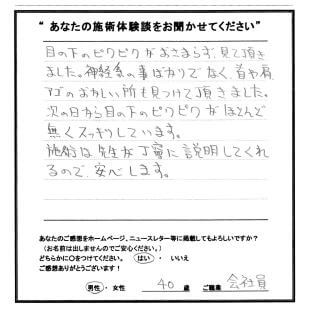 “ あなたの施術体験談をお聞かせください”
目の下のピクピクがおさまらず、見て頂き
ました。神経系の事ばかりでなく、首や肩
アゴのおかしい所も見つけて頂きました。
次の日から目の下のピクピクがほとんど
無くスッキリしています。
施術は先生が丁寧に説明してくれ
るので、安心します。
あなたのご感想をホームページ、ニュースレター等に掲載してもよろしいですか？
（お名前は出しませんのでご安心ください。）
どちらかに○をつけてください。 はい ・ いいえ
ご感想ありがとうございます！
男性 ・ 女性 40 歳 ご職業 会社員